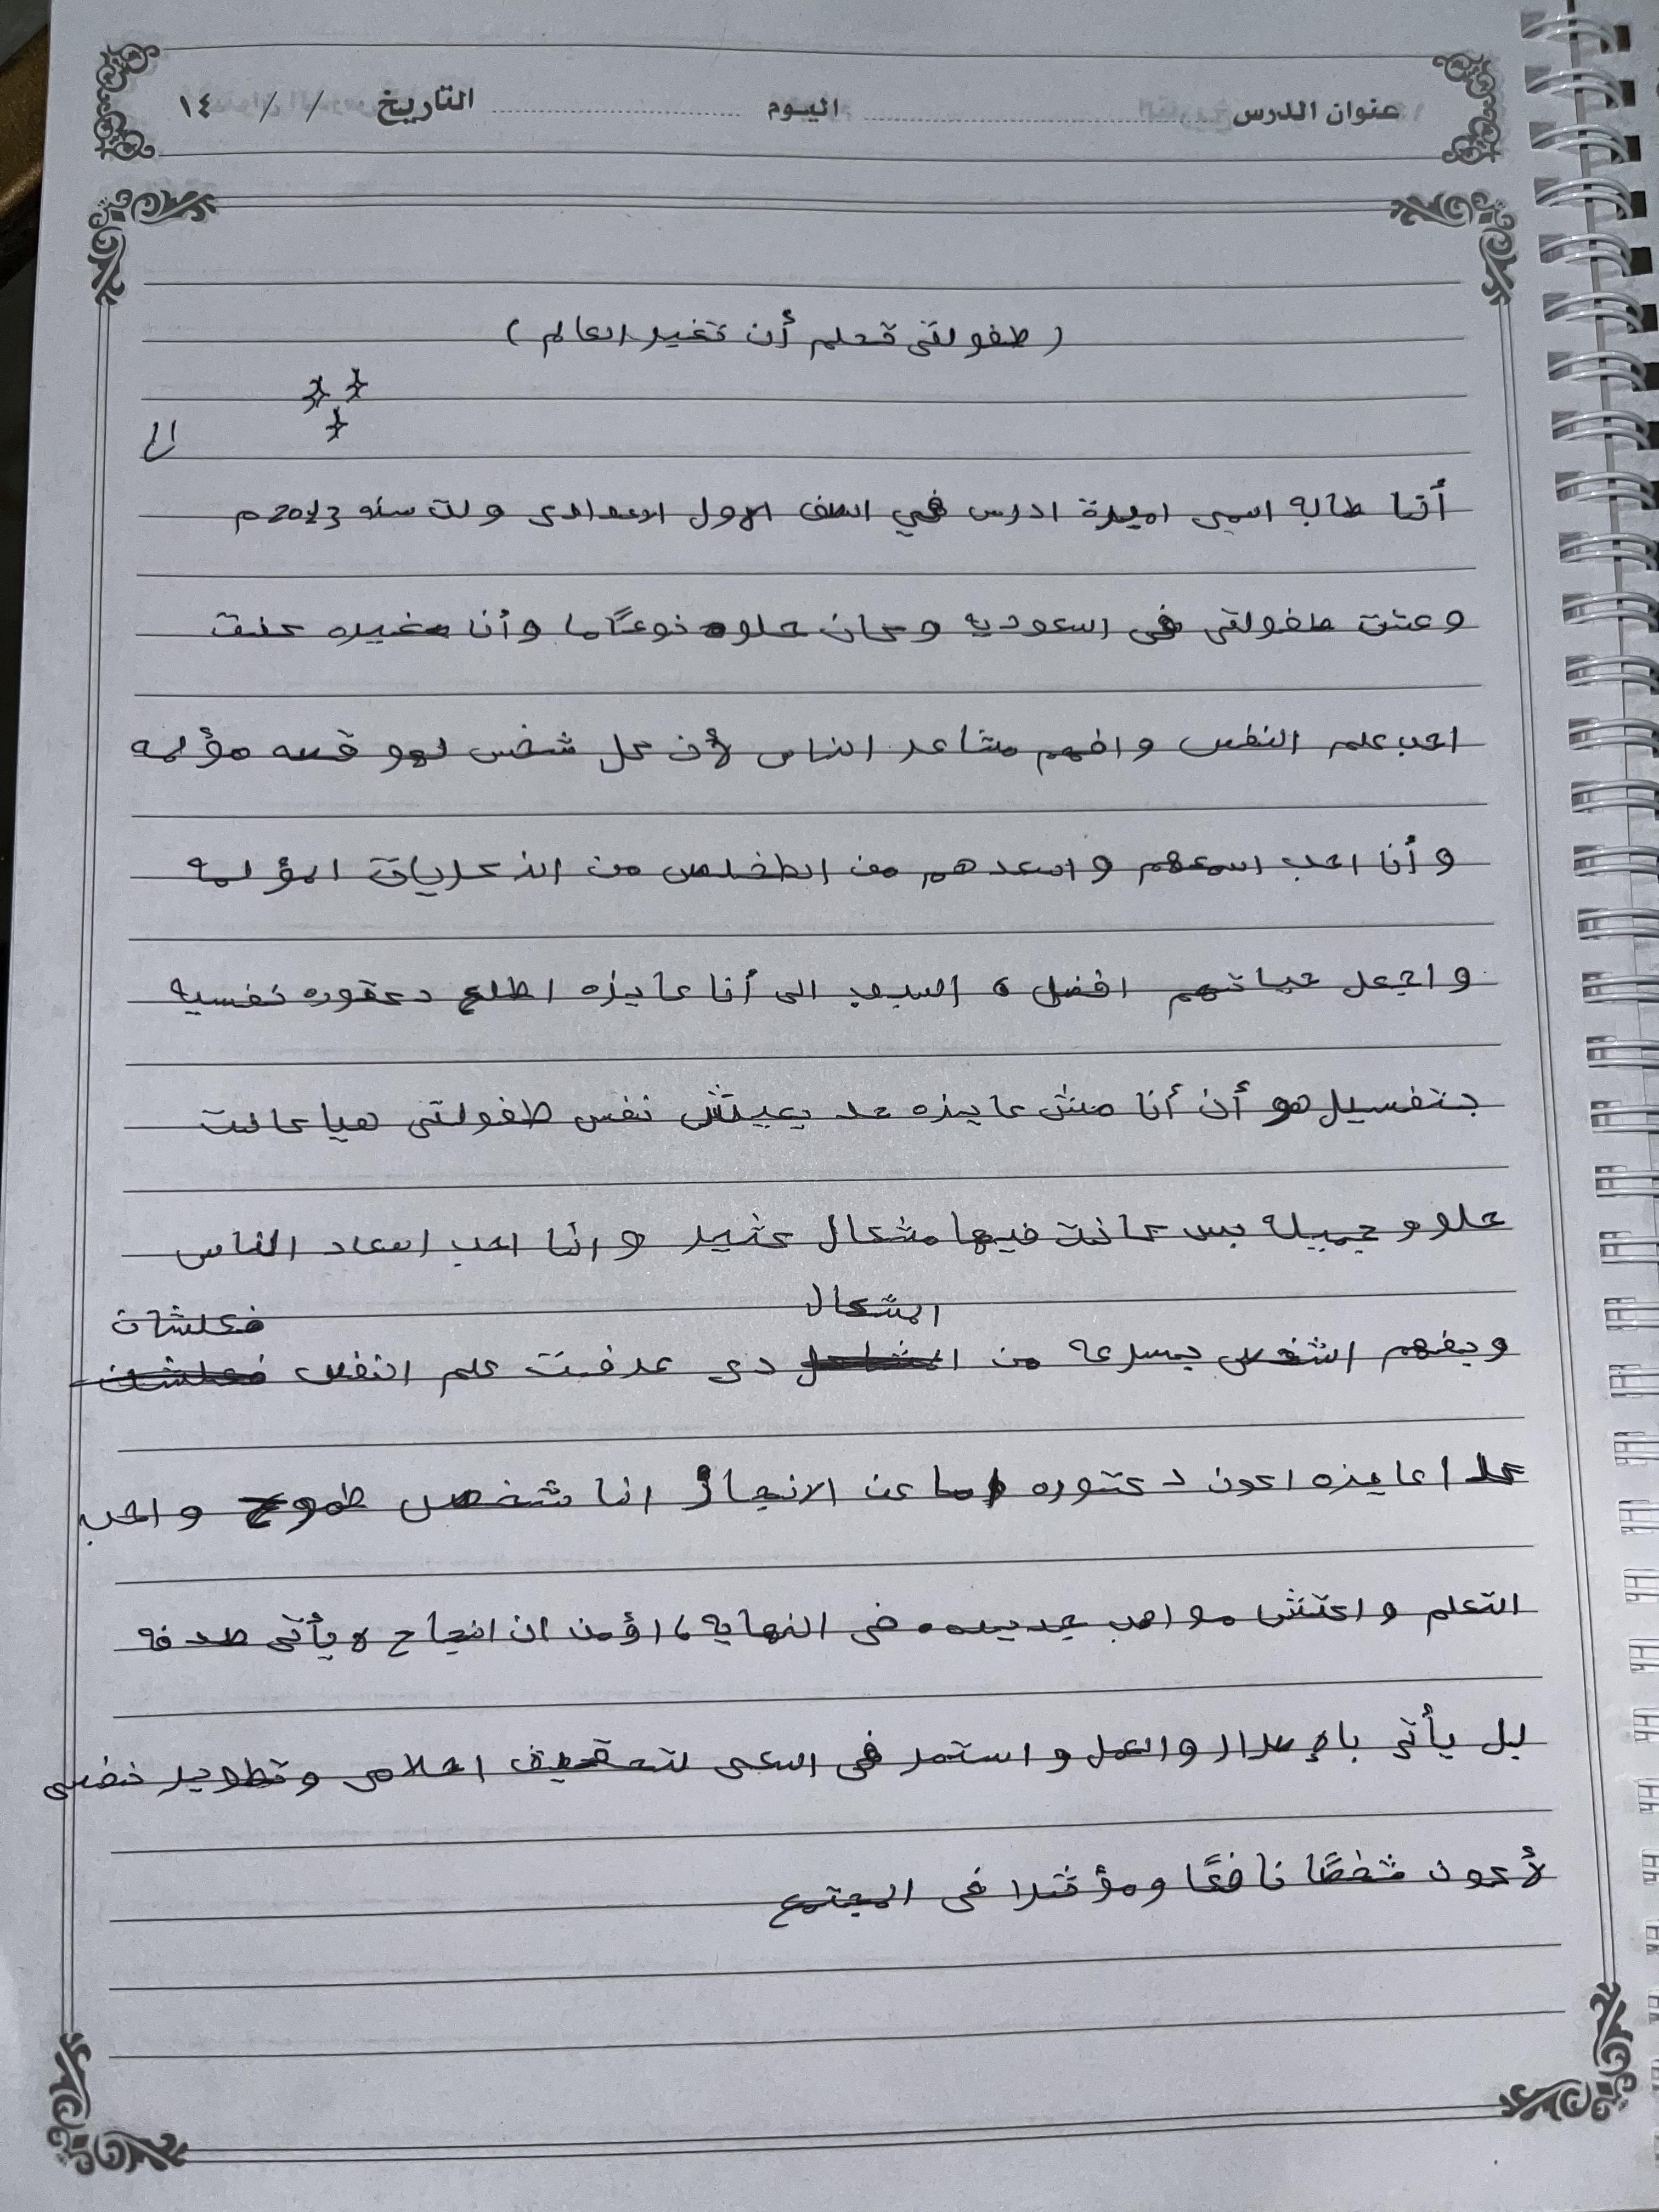 عنوان الدرس اليوم التاريخ / / ١٤
( طفولتى تحلم أن تغير العالم )
أنا طالبه اسمى اميرة ادرس في الصف الاول الاعدادى ولت سنه 2013م
وعشت طفولتى فى السعوديه وكان حلوه نوعًا ما وأنا صغيره كنت
احب علم النفس وافهم مشاعر الناس لأن كل شخص لهو قصه مؤلمه
وأنا احب اسمعهم واسعدهم من الطخلص من الذكريات المؤلمه
واجعل حياتهم افضل، السبب الى أنا عايزه اطلع دكتوره نفسيه
بتفسيل هو أن أنا مش عايزه حد يعيش نفس طفولتى هيا كانت
حلو وجميله بس كانت فيها مشكال كثير وانا احب اسعاد الناس
المشكال فعلشان
وبفهم الشخص بسرعه من دى عرفت علم النفس
كدا عايزه اكون دكتوره اما عن الانجاز انا شخص طموح واحب
التعلم واكتش مواهب جديده. فى النهايه، اؤمن ان انجاح لا يأتى صدفه
بل يأتى بالإصرار والعمل واستمر فى السعى لتحقيق احلامى وتطوير نفسى
لأكون شخصًا نافعًا ومؤثرا فى المجتمع